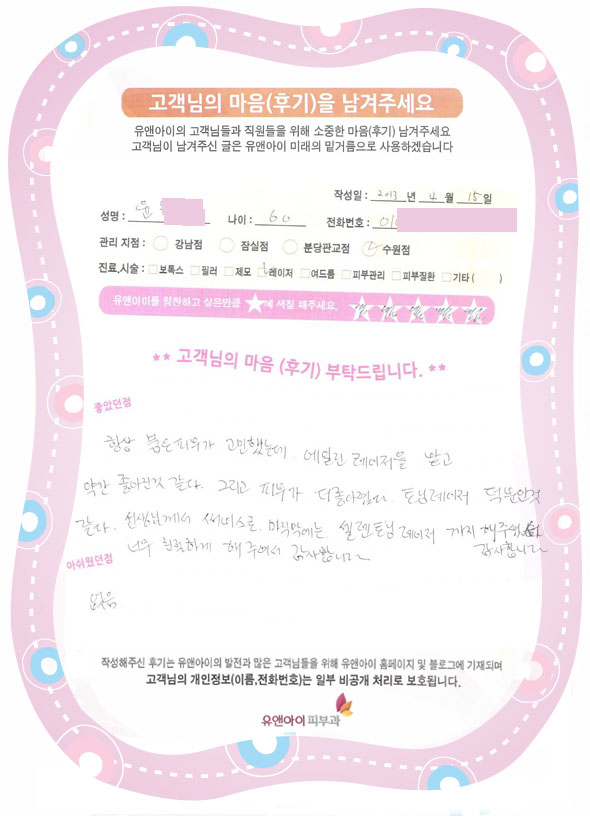 고객님의 마음(후기)을 남겨주세요
유앤아이의 고객님들과 직원들을 위해 소중한 마음(후기) 남겨주세요
고객님이 남겨주신 글은 유앤아이 미래의 밑거름으로 사용하겠습니다
작성일 : 2013 년 4 월 15 일
성명 : 윤 나이 : 60 전화번호 : 01
관리 지점 : 강남점 잠실점 분당판교점 수원점
진료,시술 : 보톡스 필러 제모 레이저 여드름 피부관리 피부질환 기타 ( )
유앤아이를 칭찬하고 싶은만큼 ★에 색칠 해주세요.
** 고객님의 마음 (후기) 부탁드립니다. **
좋았던점
항상 붉은피부가 고민했는데 에밀린 레이져를 받고
약간 좋아진것 같다. 그리고 피부가 더좋아졌 토닝레이저 덕분인것
같다. 선생님께서 써비스로 마지막에는 셀렌토닝 레이저 까지 해주셨
너무 해 주어서 감사합니다 감사합니다
아쉬웠던점
없음.
작성해주신 후기는 유앤아이의 발전과 많은 고객님들을 위해 유앤아이 홈페이지 및 블로그에 기재되며
고객님의 개인정보(이름,전화번호)는 일부 비공개 처리로 보호됩니다.
유앤아이피부과